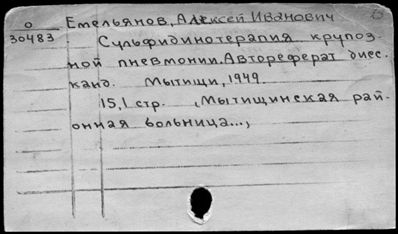 О Емельянов, Алексей Иванович
30483 Сульфидинотерапия крупоз-
ной пневмонии. Автореферат дисс.
канд. Мытищи, 1949.
15, 1 стр. (Мытищинская рай-
онная больница...,